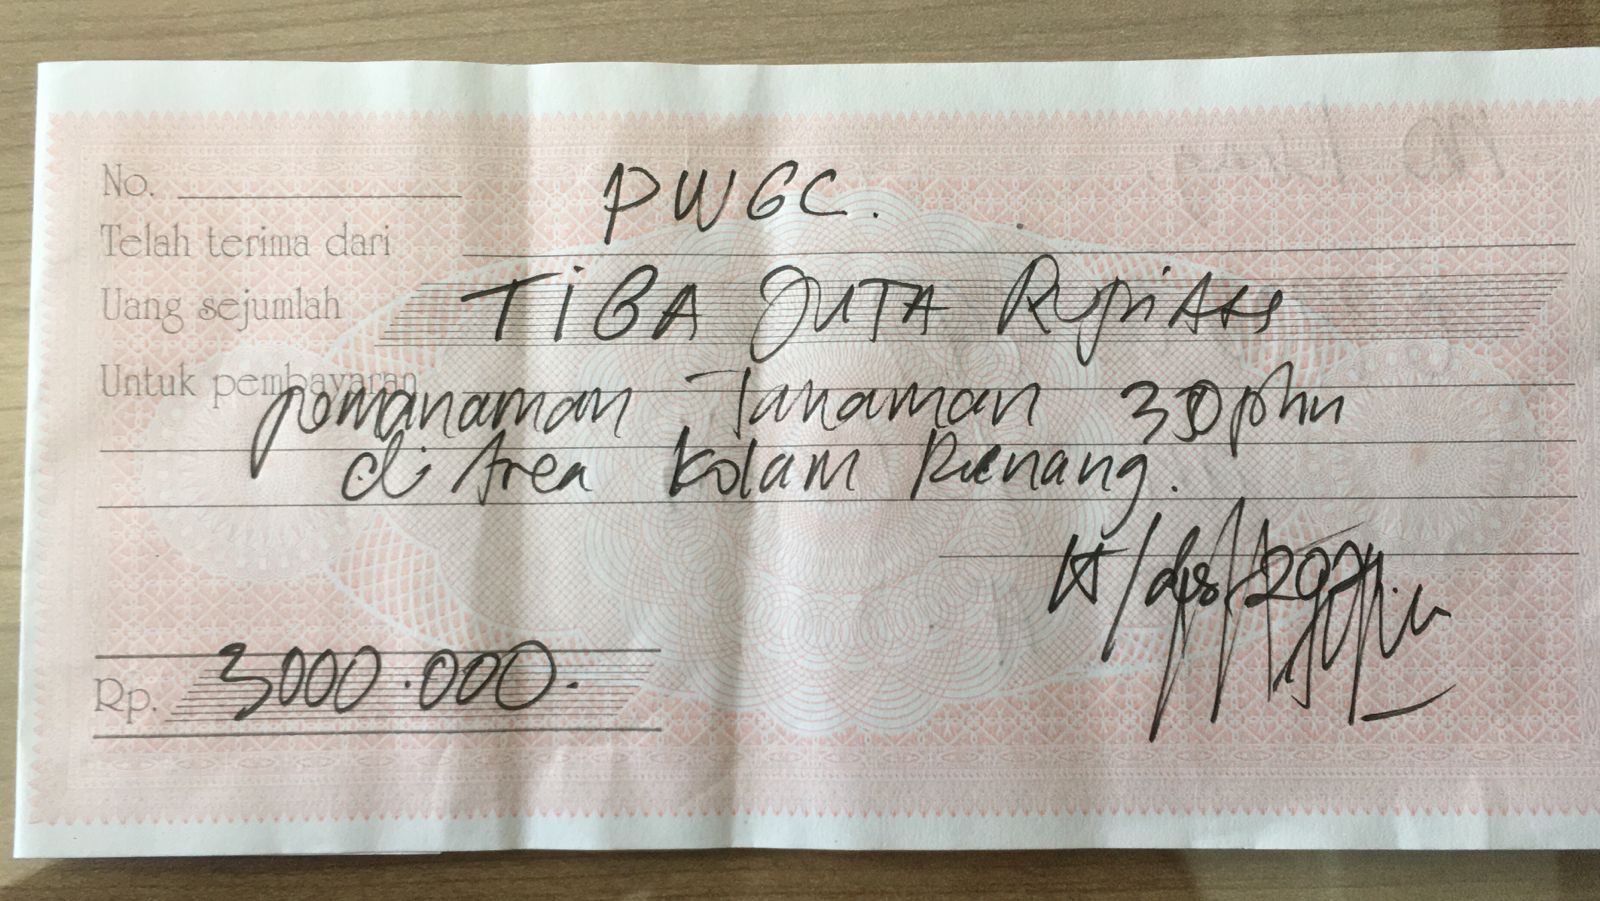 No.
Telah terima dari PWGC.
Uang sejumlah TIGA JUTA Rupiah
Untuk pembayaran pemanaman Tanaman 350 phn
di Area Kolam Renang.
Rp. 3000.000.